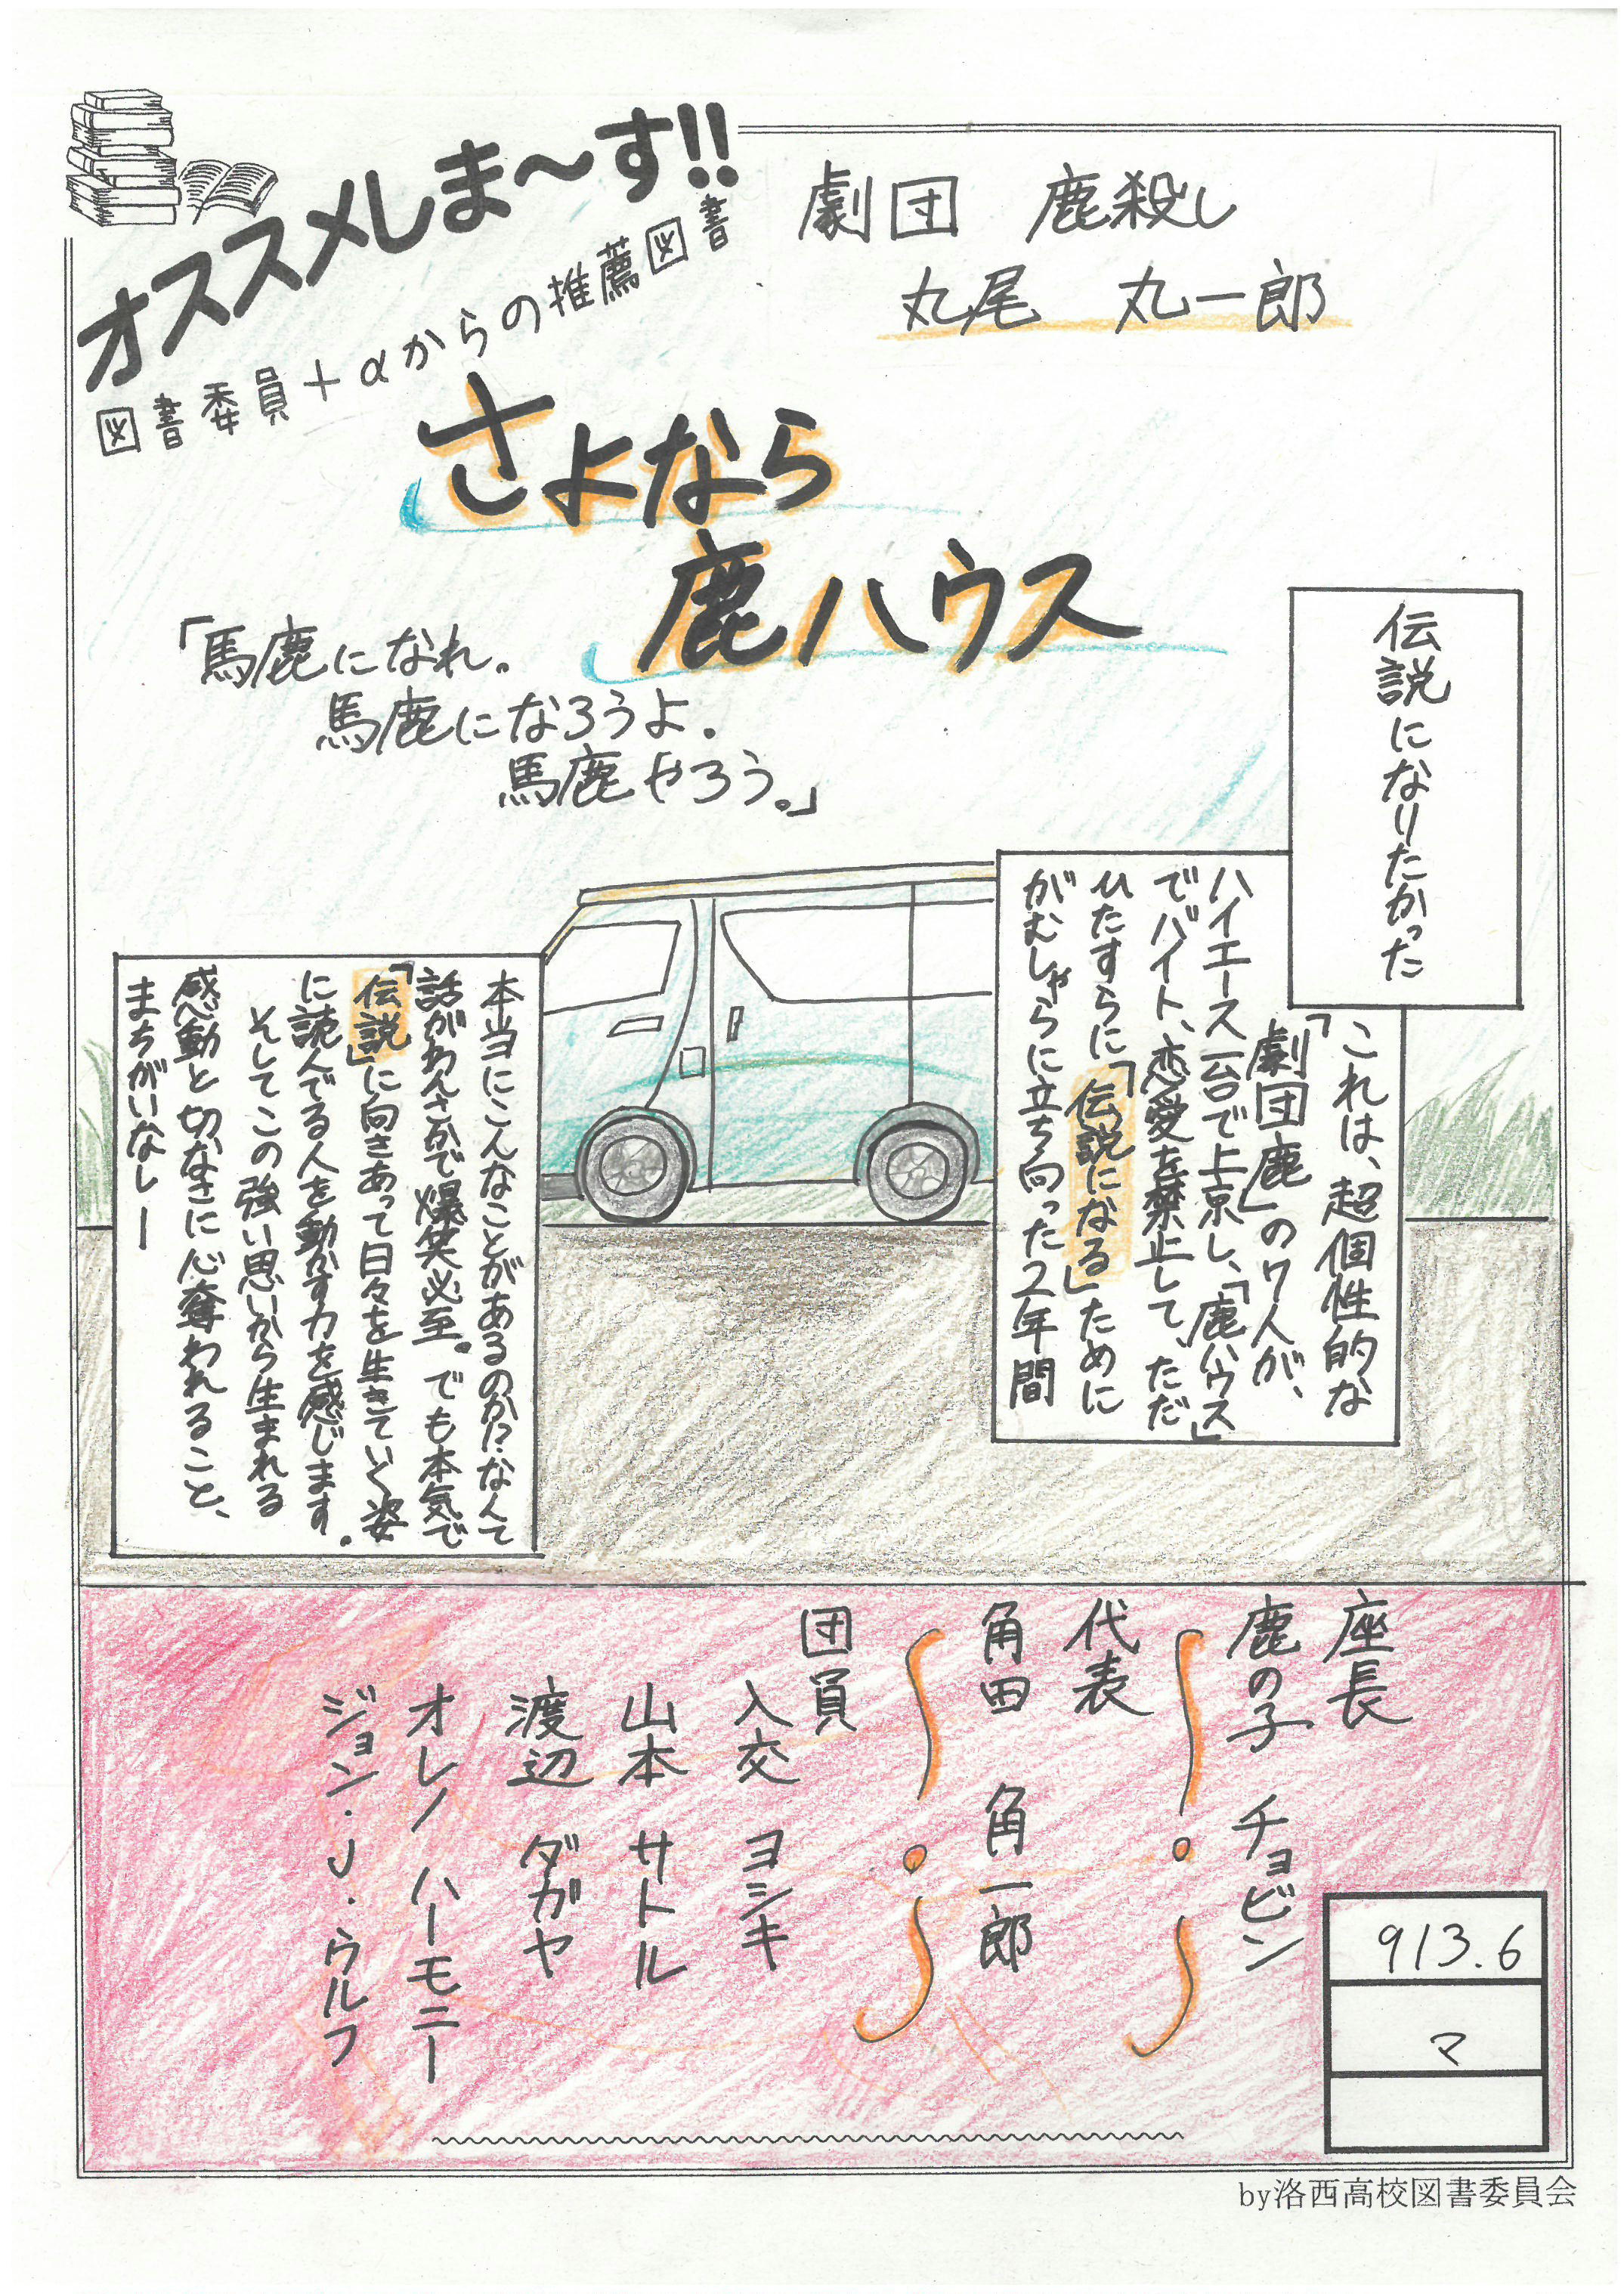 オススメしま〜す!!
図書委員+αからの推薦図書
劇団 鹿殺し
丸尾 丸一郎
さよなら
鹿ハウス
「馬鹿になれ。
馬鹿になろうよ.
馬鹿やろう。」
伝説になりたかった
これは、超個性的な
「劇団鹿」の7人が、
ハイエース一台で上京し、「鹿ハウス」
でバイト、恋愛を禁止して、ただ
ひたすらに「伝説になる」ために
がむしゃらに立ち向った2年間
本当にこんなことがあるのか!?なんて
話がわんさかで爆笑必至。でも本気で
「伝説」に向きあって日々を生きていく姿
に読んでる人を動かす力を感じます.
そしてこの強い思いから生まれる
感動と切なさに心奪われること、
まちがいなしー
座長
鹿の子 チョビン
代表
角田 角一郎
団員
入交 ヨシキ
山本 サトル
渡辺 ダガヤ
オレノ ハーモニー
ジョン・J・ウルフ
913.6
マ
by洛西高校図書委員会